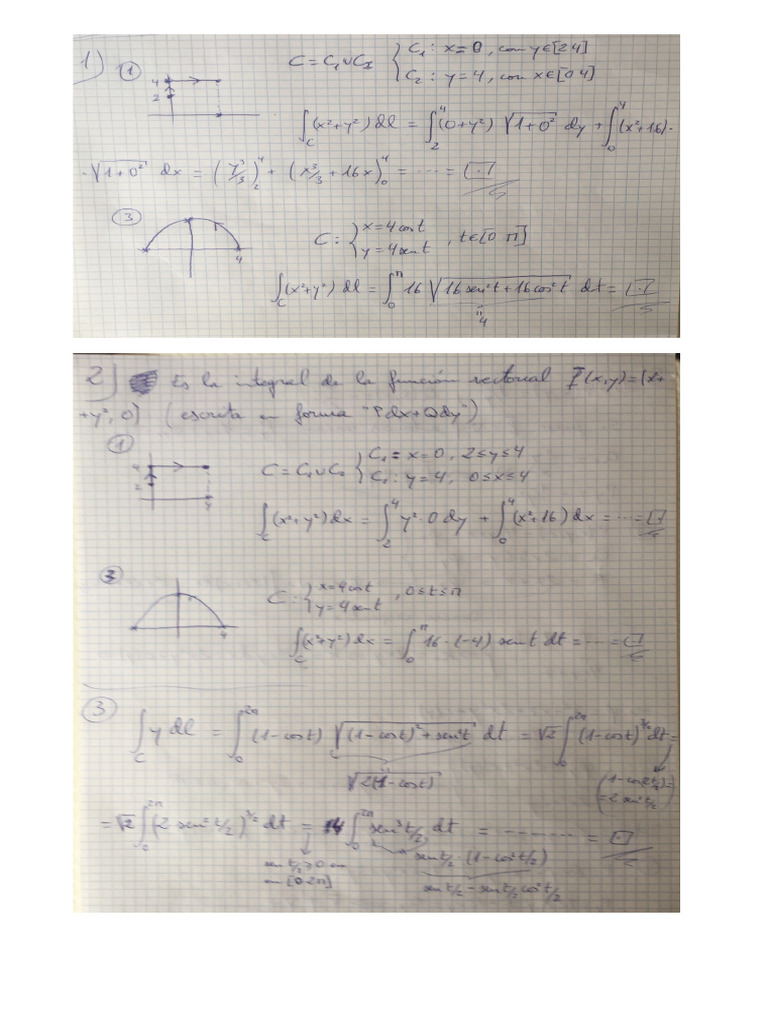 1) ① C = C₁ ∪ C₂ { C₁: x = 0, con y∈[2 4]
C₂: y = 4, con x∈[0 4]
4
2
∫_C (x²+y²) dl = ∫₂⁴ (0+y²) √(1+0²) dy + ∫₀⁴ (x²+16)·
·√(1+0²) dx = (y³/3)₂⁴ + (x³/3 + 16x)₀⁴ = ---- = [·]
③ C: { x = 4 cos t
y = 4 sen t , t∈[0 π]
4
∫_C (x²+y²) dl = ∫₀^π 16 √(16 sen²t + 16 cos²t) dt = [·]
4
2) Es la integral de la función vectorial F̄(x,y) = (x²+
+y², 0) (escrita en forma "Pdx+Qdy")
① C = C₁ ∪ C₂ { C₁ = x = 0, 2≤y≤4
C₂: y = 4, 0≤x≤4
4
∫_C (x²+y²) dx = ∫₂⁴ y²·0 dy + ∫₀⁴ (x²+16) dx = ---- = [·]
③ C: { x = 4 cos t
y = 4 sen t , 0≤t≤π
4
∫_C (x²+y²) dx = ∫₀^π 16·(-4) sen t dt = ---- = [·]
③ ∫_C y dl = ∫₀^2π (1-cos t) √((1-cos t)² + sen²t) dt = √2 ∫₀^2π (1-cos t)^3/2 dt =
√(2(1-cos t))
(1-cos(2t/2) =
= 2 sen² t/2)
= √2 ∫₀^2π (2 sen² t/2)^3/2 dt = 4 ∫₀^2π sen³ t/2 dt = -------- = [·]
sen t/2 ≥ 0 en
en [0 2π]
sen t/2 · (1-cos² t/2)
sen t/2 - sen t/2 cos² t/2